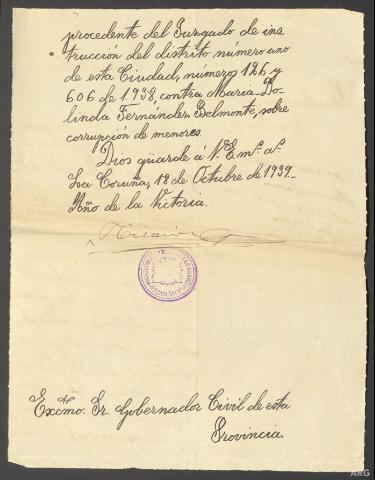 procedente del Juzgado de ins
trucción del distrito número uno
de esta Ciudad, números 126 y
606 de 1.938, contra Maria Do-
linda Fernández Belmonte, sobre
corrupción de menores.
Dios guarde á V. E. mˢ. aˢ.
La Coruña, 18 de Octubre de 1939-
Año de la Victoria.
Excmo. Sr. Gobernador Civil de esta
Provincia.
ARG